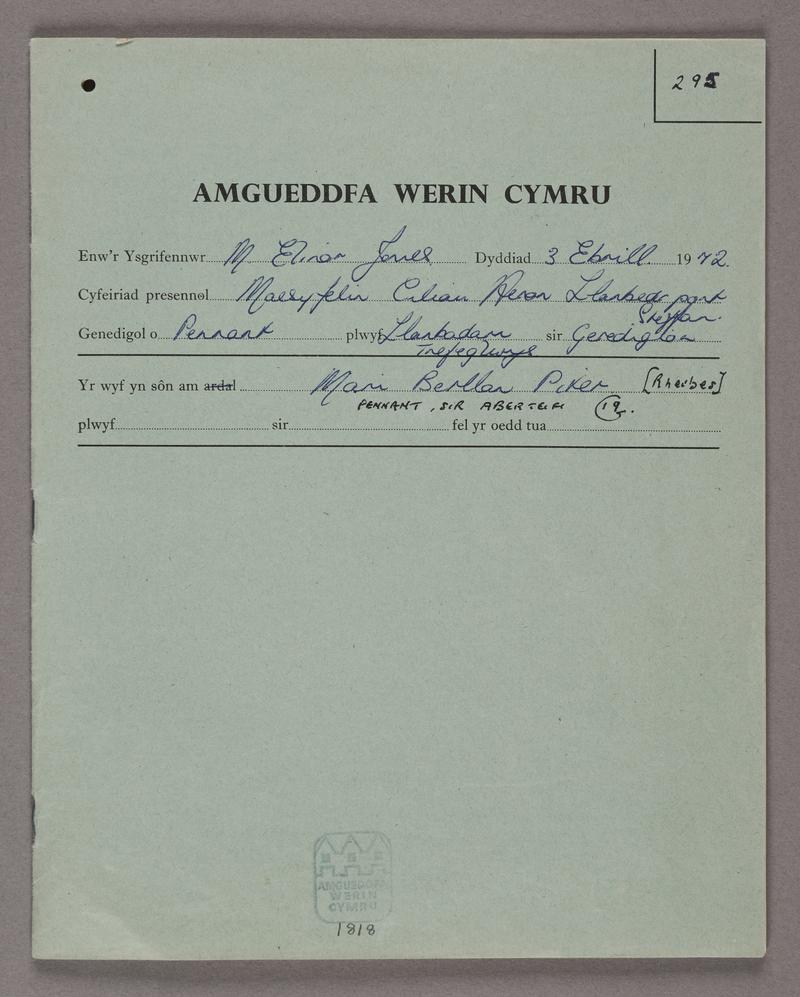 295
AMGUEDDFA WERIN CYMRU
Enw'r Ysgrifennwr M Elinor Jones Dyddiad 3 Ebrill 1972.
Cyfeiriad presennol Maesyfelin Cilian Aeron Llanbedr pont
Steffan.
Genedigol o Pennant plwyf Llanbadarn sir Geredigion
Trefeglwys
Yr wyf yn sôn am ardal Mari Berllan Piter [Rheibes]
PENNANT, SIR ABERTEIFI 19.
plwyf sir fel yr oedd tua
AMGUEDDFA
WERIN
CYMRU
1818